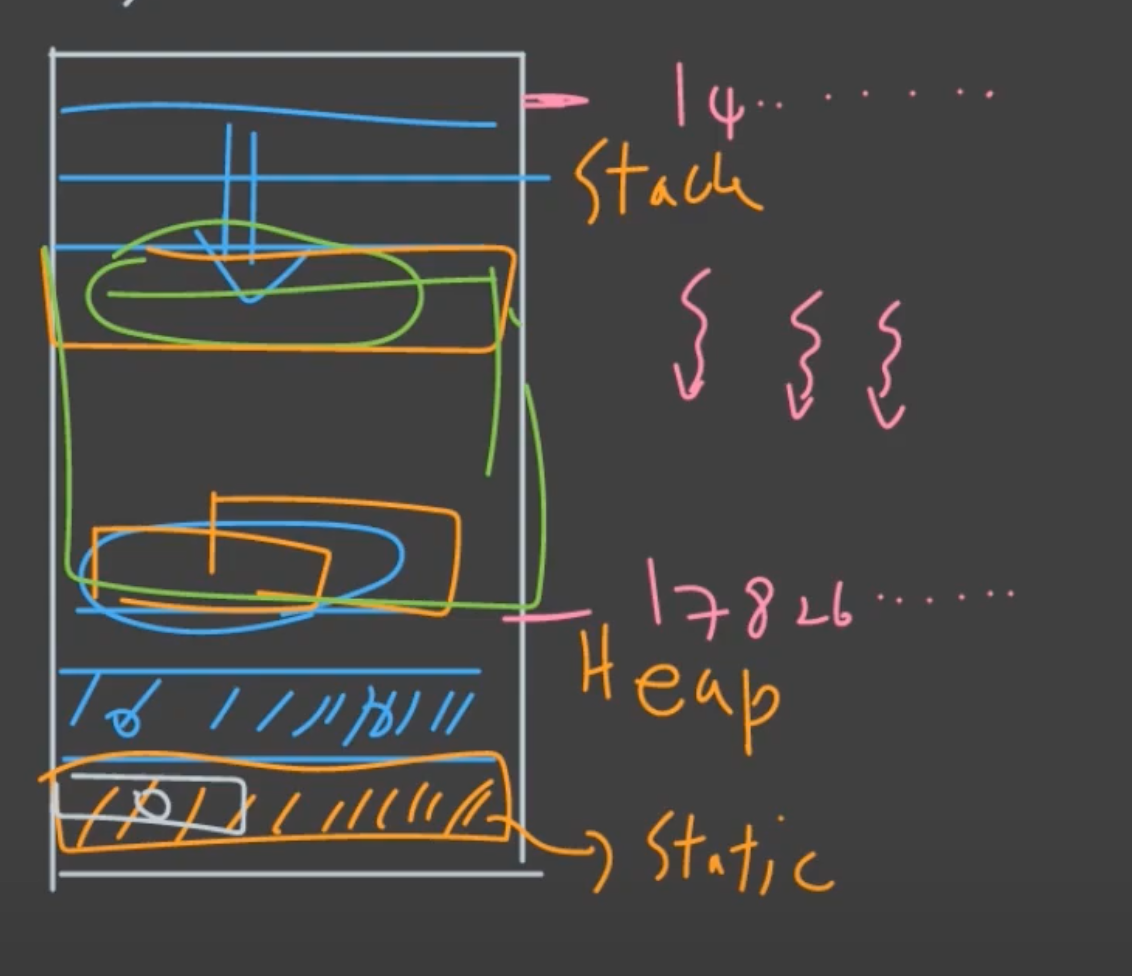 14.........
Stack
17826......
Heap
Static